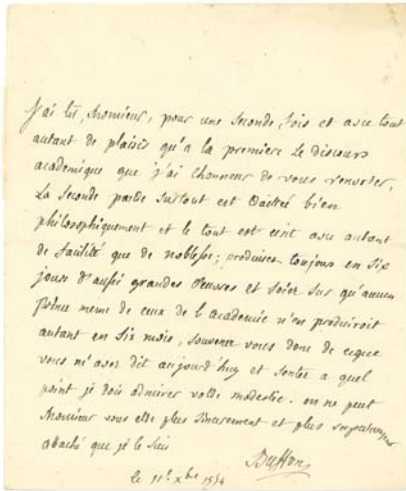 J'ai lu, Monsieur, pour une seconde fois et avec tout
autant de plaisir qu'a la premiere le discours
academique que j'ai l'honneur de vous renvoier,
la seconde partie surtout est traittée bien
philosophiquement et le tout est ecrit avec autant
de facilité que de noblesse; produises toujours en six
jours d'aussi grandes oeuvres et soiés sur qu'aucun
meme de ceux de l'academie n'en produiroit
autant en six mois, souvenes vous donc de ceque
vous m'aves dit aujourd'huy et sentés a quel
point je dois admirer votre modestie. on ne peut
Monsieur vous etre plus sincerement et plus
attaché que je le suis
Buffon
le 11e xbre 1754